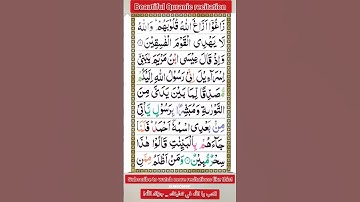 Beautiful Quranic recitation
زَاغُوْٓا اَزَاغَ اللّٰهُ قُلُوْبَهُمْ ۗ وَاللّٰهُ
لَا يَهْدِى الْقَوْمَ الْفٰسِقِيْنَ
وَاِذْ قَالَ عِيْسَى ابْنُ مَرْيَمَ يٰبَنِىْٓ
اِسْرَآءِيْلَ اِنِّىْ رَسُوْلُ اللّٰهِ اِلَيْكُمْ
مُّصَدِّقًا لِّمَا بَيْنَ يَدَىَّ مِنَ
التَّوْرٰىةِ وَمُبَشِّرًۢا بِرَسُوْلٍ يَّاْتِىْ
مِنْۢ بَعْدِى اسْمُهٗٓ اَحْمَدُ ۗ فَلَمَّا
جَآءَهُمْ بِالْبَيِّنٰتِ قَالُوْا هٰذَا
سِحْرٌ مُّبِيْنٌ وَمَنْ اَظْلَمُ مِمَّنِ
Subscribe to watch more recitations like this!